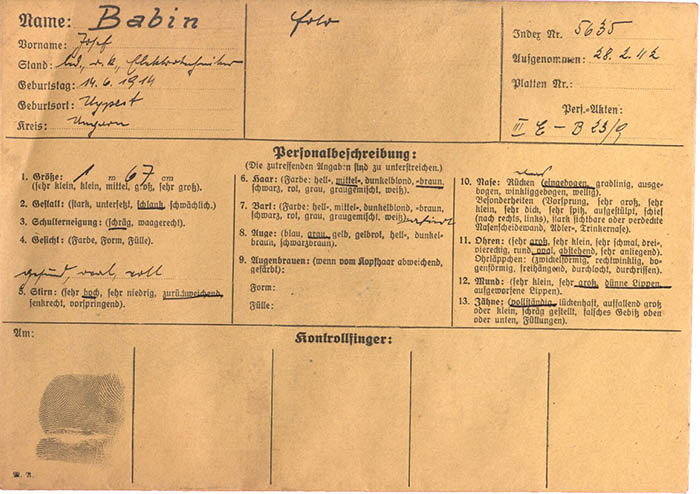 Name: Babin
Vorname: Josef
Stand: led., r. k., Elektrotechniker
Geburtstag: 14. 6. 1914
Geburtsort: Ujpest
Kreis: Ungarn
Foto
Index Nr. 5635
Aufgenommen: 28. 2. 42
Platten Nr.:
Pers.-Akten:
III E – B 23/9
Personalbeschreibung:
(Die zutreffenden Angaben sind zu unterstreichen.)
1. Größe: 1 m 67 cm
(sehr klein, klein, mittel, groß, sehr groß).
2. Gestalt: (stark, untersetzt, schlank, schwächlich).
3. Schulterneigung: (schräg, waagerecht).
4. Gesicht: (Farbe, Form, Fülle).
gesund, oval, voll
5. Stirn: (sehr hoch, sehr niedrig, zurückweichend,
senkrecht, vorspringend).
6. Haar: (Farbe: hell-, mittel-, dunkelblond, -braun,
schwarz, rot, grau, graugemischt, weiß).
7. Bart: (Farbe: hell-, mittel-, dunkelblond, -braun,
schwarz, rot, grau, graugemischt, weiß)
rasiert
8. Auge: (blau, grau, gelb, gelbrot, hell-, dunkel-
braun, schwarzbraun).
9. Augenbrauen: (wenn vom Kopfhaar abweichend,
gefärbt):
Form:
Fülle:
10. Nase: Rücken (eingebogen, gradlinig, ausge-
bogen, winkliggebogen, wellig).
Besonderheiten (Vorsprung, sehr groß, sehr
klein, sehr dick, sehr spitz, aufgestülpt, schief
(nach rechts, links), stark sichtbare oder verdeckte
Nasenscheidewand, Adler-, Trinkernase).
11. Ohren: (sehr groß, sehr klein, sehr schmal, drei-,
viereckig, rund, oval, abstehend, sehr anliegend).
Ohrläppchen: (zwickelförmig, rechtwinklig, bo-
genförmig, freihängend, durchlocht, durchrissen).
12. Mund: (sehr klein, sehr groß, dünne Lippen,
aufgeworfene Lippen).
13. Zähne: (vollständig, lückenhaft, auffallend groß
oder klein, schräg gestellt, falsches Gebiß oben
oder unten, Füllungen).
Am:
Kontrollfinger: